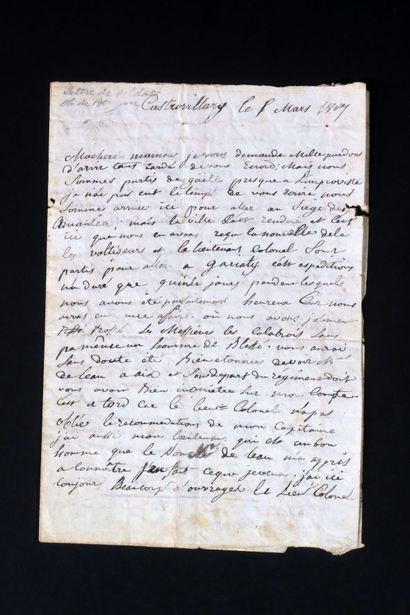 Lettre de
Castrovillary le 8 Mars 1807
Machere maman je vous demande Mille pardons
d'avoir tant tardé a vous Ecrire Mais nous
Sommes partis de presque a Limproviste
je nai pas eut le temps de vous ecrire nous
Sommes arrives ici pour aler au Siege des
Amantea mais la ville Sest rendue et Cest
ici que nous en avons reçu la nouvelle
les voltigeurs et le lieutenant Colonel Sont
partis pour aler a cette expedition
na duré que quinze jours pendant lesquels
nous avons eté parfaitement heureux Car nous
avons eu une affaire où nous avons
Messieurs les Calabrois Sans
pas même un homme de Blessé vous aurez
Sans doute eté Bien etonnée de voir Mr
de leau a aix et Son depart du régiment doit
vous avoir Bien inquietée Sur mon Compte
Cest a tord Car le lieut Colonel na pas
oblié le recommendations de mon Capitaine
j'ai aussi mon lieutenant qui est un bon
homme que le Mr de leau m'a appris
a Connoitre ceque j'ai eté
toujours Beaucoup d'ouvrage le Lieu Colonel